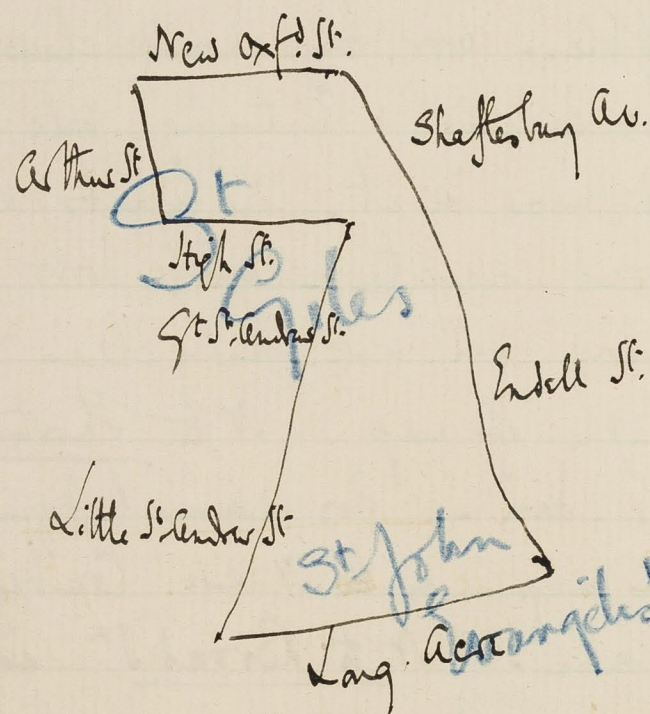 New Oxfd. St.
Shaftesbury Av.
Arthur St
St
Giles
High St.
Gt St. Andrew St.
Endell St.
Little St. Andrew St
St John
Evangelist
Long. Acre